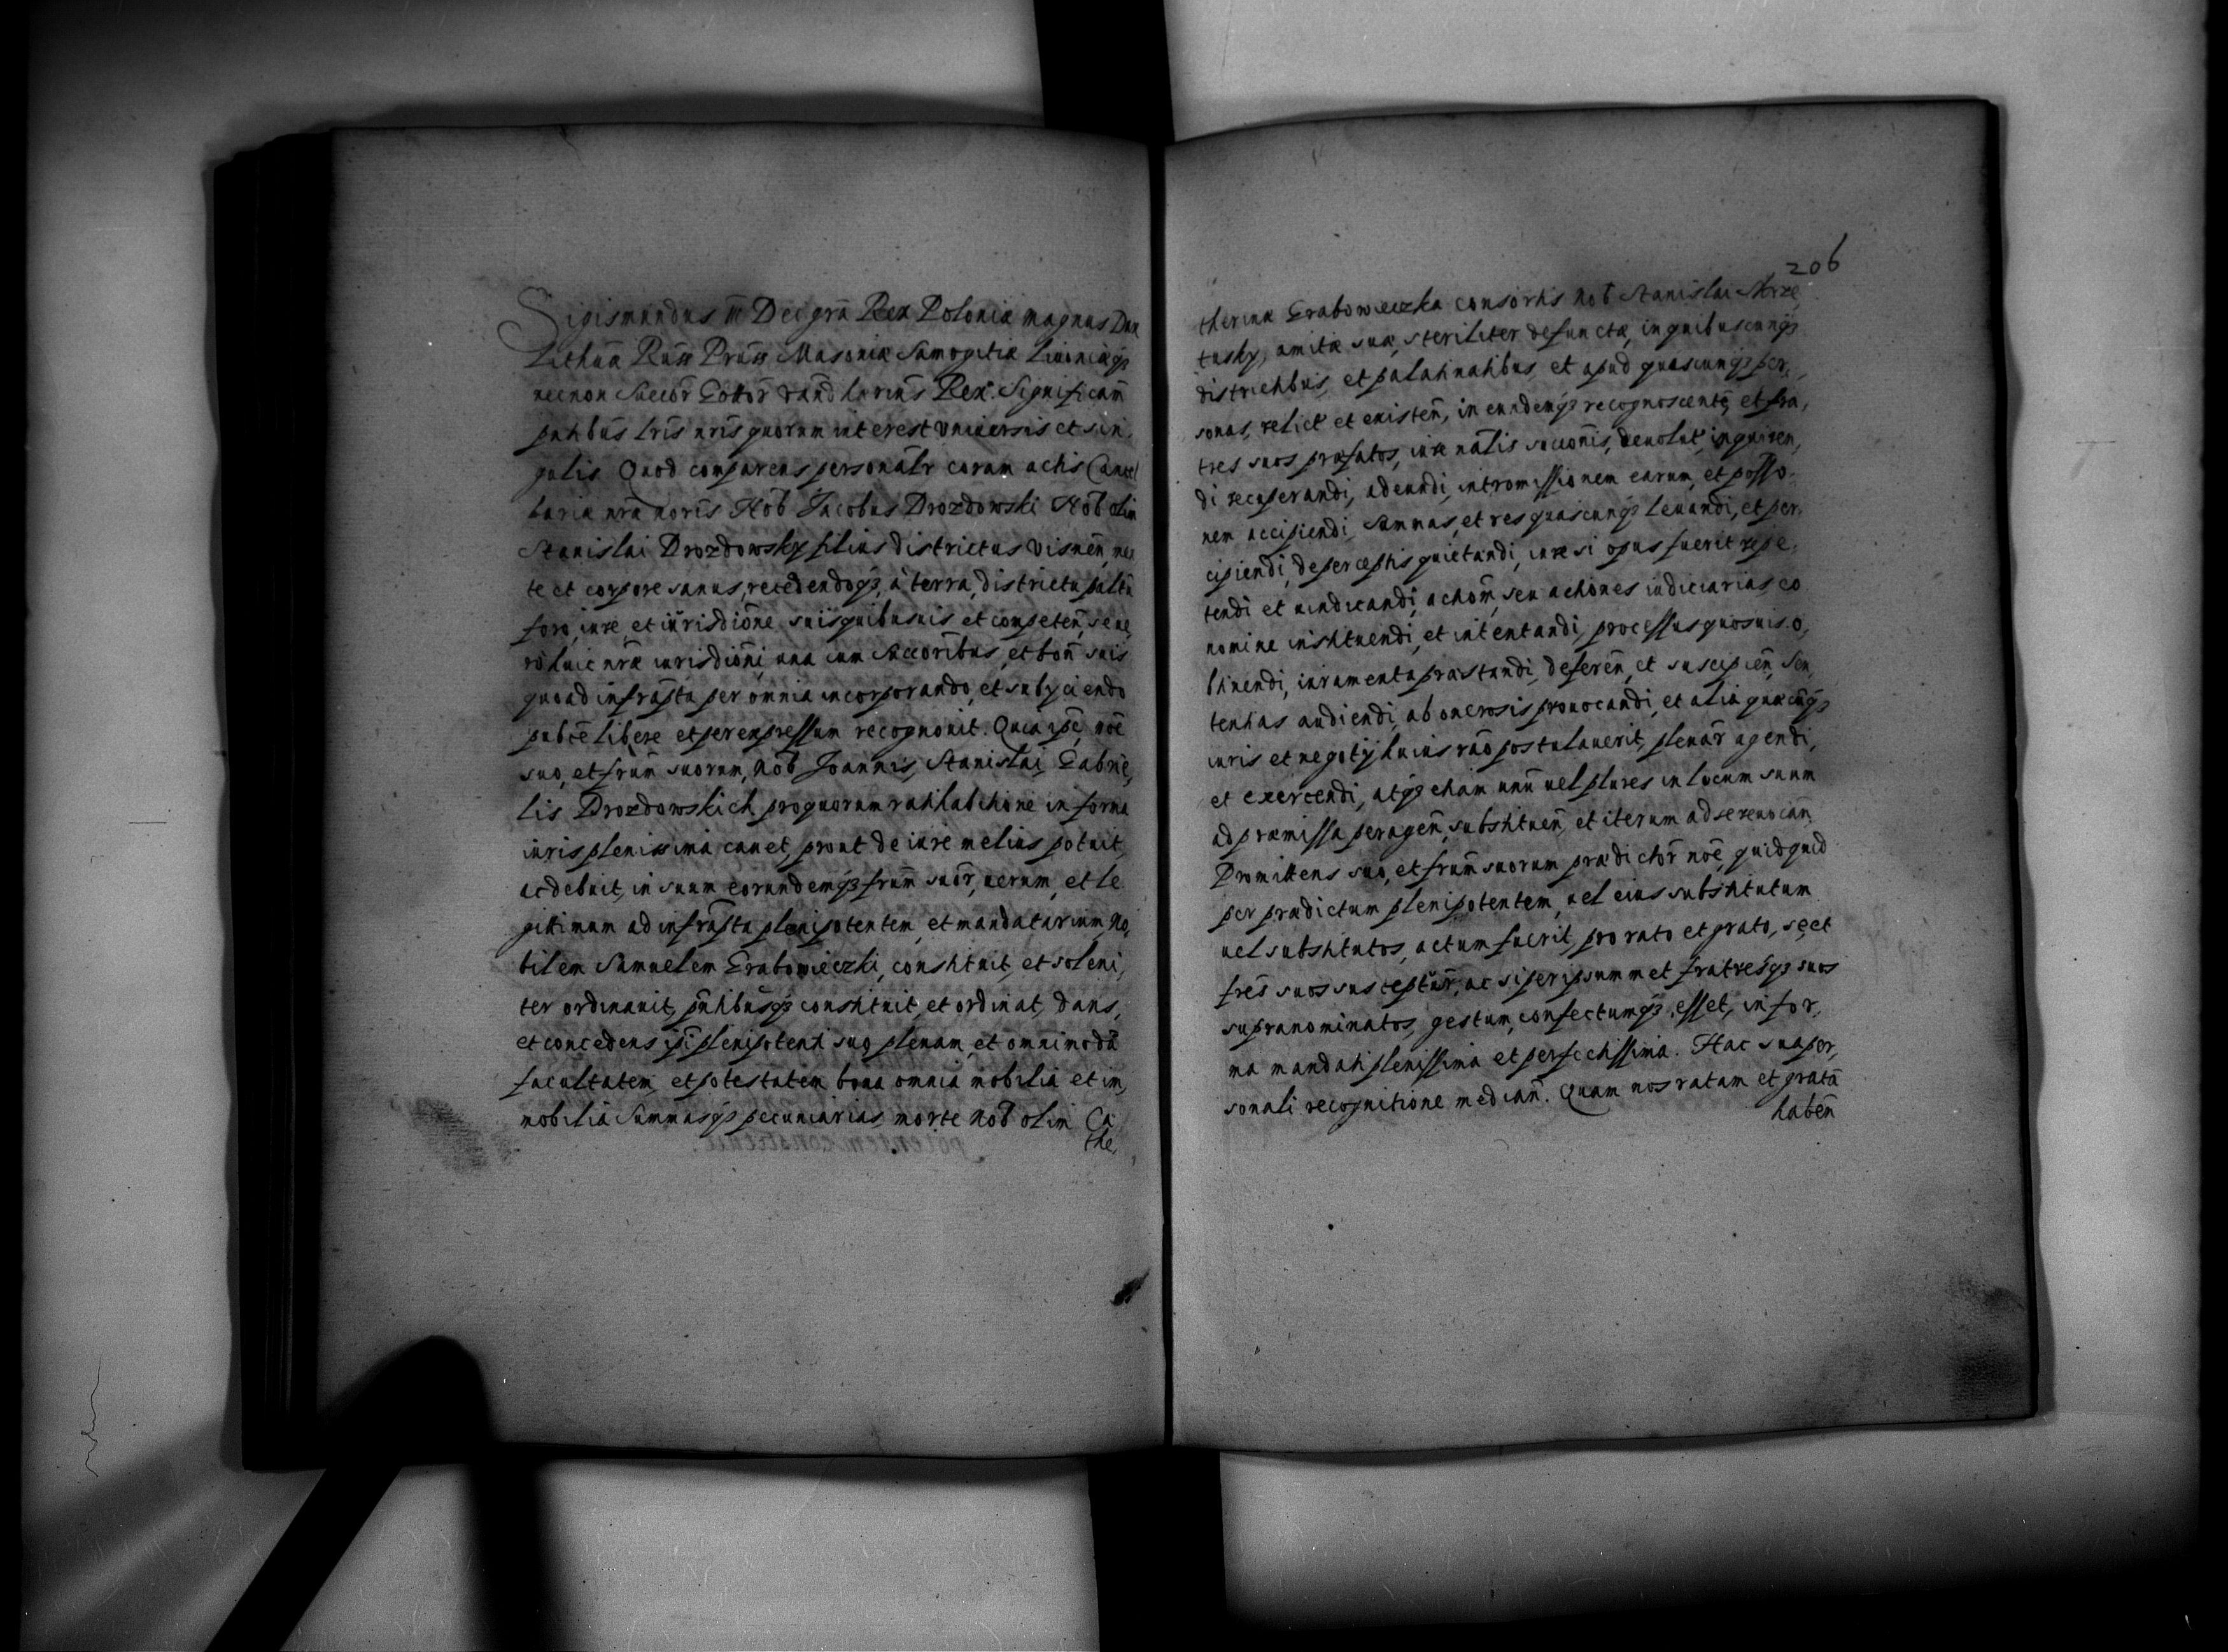 Sigismundus III Dei grã Rex Poloniæ magnus Dux
Lithuã Russ Pruss Masoniæ Samogitiæ Liuoniæq3
necnon Suecor̃ Gottor̃ Vand lorum̃s Rex. Significam̃
pñtibus lris nris quorum interest Vniuersis et sin,
gulis Quod comparens personalr̃ coram actis Cancel
lariæ nræ Nob̃ Jacobus Drozdowski Nob̃ olim
Stanislai Drozdowsky filius districtus Visnen̄, men
te et corpore sanus, recedendoq3, à terra, districtu palt̃u
foro, iure, et iurisdiõne suis quibusuis et competen̄, seue,
rò huic nræ iurisdiõni una cum Succoribus, et bon̄ suis
quoad infrãpta per omnia incorporando, et subyciendo
publcẽ libere et per expressum recognouit. Quia ipẽ, noẽ
suo, et frum̃ suorum, Nob̃ Joannis, Stanislai, Gabrie,
lis Drozdowskich pro quorum ratihabitione in forma
iuris plenissima cauet, prout de iure melius potuit,
ac debuit, in suum eorundemq3 frum̃ suor̃, uerum, et le
gitimum ad infrãpta plenipotentem, et mandatarium, No,
bilem Samuelem Grabowieczki, constituit, et soleni,
ter ordinauit, pñtibusq3 constituit, et ordinat, dans,
et concedens ipĩ plenipotenti suo plenam, et omnimodã
facultatem, et potestatem bona omnia mobilia et im,
mobilia Summasq3 pecuniarias, morte Nob̃ olim Ca
the,
206
therinæ Grabowieczka consortis Nob̃ Stanislai Skrze,
tusky, amitæ suæ, steriliter defunctæ, in quibuscunq3
districtibus, et palatinatibus, et apud quascunq3 per,
sonas, relict̃ et existen̄, in eundemq3 recognoscentẽ, et fra,
tres suos præfatos, iure natlis succonĩs, deuolut̃, inquiren,
di recuperandi, adeundi, intromissionem earum, et posso
nem accipiendi, Summas, et res quascunq3 leuandi, et per,
cipiendi, de perceptis quietandi, iure si opus fuerit repe,
tendi et uindicandi, actiom̃, seu actiones iudiciarias, eo
nomine instituendi, et intentandi, processus quosuis o,
btinendi, iuramenta præstandi, deferen̄, et suscipien̄, Sen,
tentias audiendi, ab onerosis prouocandi, et alia quæcunq3
iuris et negotÿ huius raõ postulauerit, plenar̃ agendi,
et exercendi, atq3 etiam unũ uel plures in locum suum
ad præmissa peragen̄, substituen̄, et iterum ad se reuocan̄,
Promittens suo, et frum̃ suorum prædictor̃ noẽ, quidquid
per prædictum plenipotentem, uel eius substitutum
uel substitutos, actum fuerit, pro rato et grato, se, et
fres̃ suos suscepturũ, ac si per ipsummet fratresq3 suos
supranominatos, gestum, confectumq3 esset, in for,
ma mandati plenissima et perfectissima. Hac sua per,
sonali recognitione median̄. Quam nos ratam et gratã
haben̄